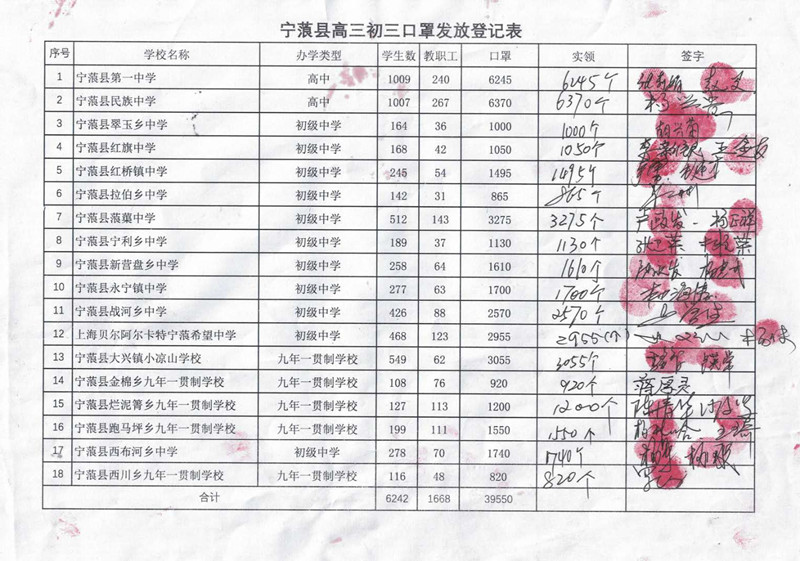 宁蒗县高三初三口罩发放登记表
序号 学校名称 办学类型 学生数 教职工 口罩 实领 签字
1 宁蒗县第一中学 高中 1009 240 6245 6245个
2 宁蒗县民族中学 高中 1007 267 6370 6370个
3 宁蒗县翠玉乡中学 初级中学 164 36 1000 1000个
4 宁蒗县红旗中学 初级中学 168 42 1050 1050个
5 宁蒗县红桥镇中学 初级中学 245 54 1495 1495个
6 宁蒗县拉伯乡中学 初级中学 142 31 865 865个
7 宁蒗县蒗蕖中学 初级中学 512 143 3275 3275个
8 宁蒗县宁利乡中学 初级中学 189 37 1130 1130个
9 宁蒗县新营盘乡中学 初级中学 258 64 1610 1610个
10 宁蒗县永宁镇中学 初级中学 277 63 1700 1700个
11 宁蒗县战河乡中学 初级中学 426 88 2570 2570个
12 上海贝尔阿尔卡特宁蒗希望中学 初级中学 468 123 2955 2955(个)
13 宁蒗县大兴镇小凉山学校 九年一贯制学校 549 62 3055 3055个
14 宁蒗县金棉乡九年一贯制学校 九年一贯制学校 108 76 920 920个
15 宁蒗县烂泥箐乡九年一贯制学校 九年一贯制学校 127 113 1200 1200个
16 宁蒗县跑马坪乡九年一贯制学校 九年一贯制学校 199 111 1550 1550个
17 宁蒗县西布河乡中学 初级中学 278 70 1740 1740个
18 宁蒗县西川乡九年一贯制学校 九年一贯制学校 116 48 820 820个
合计 6242 1668 39550